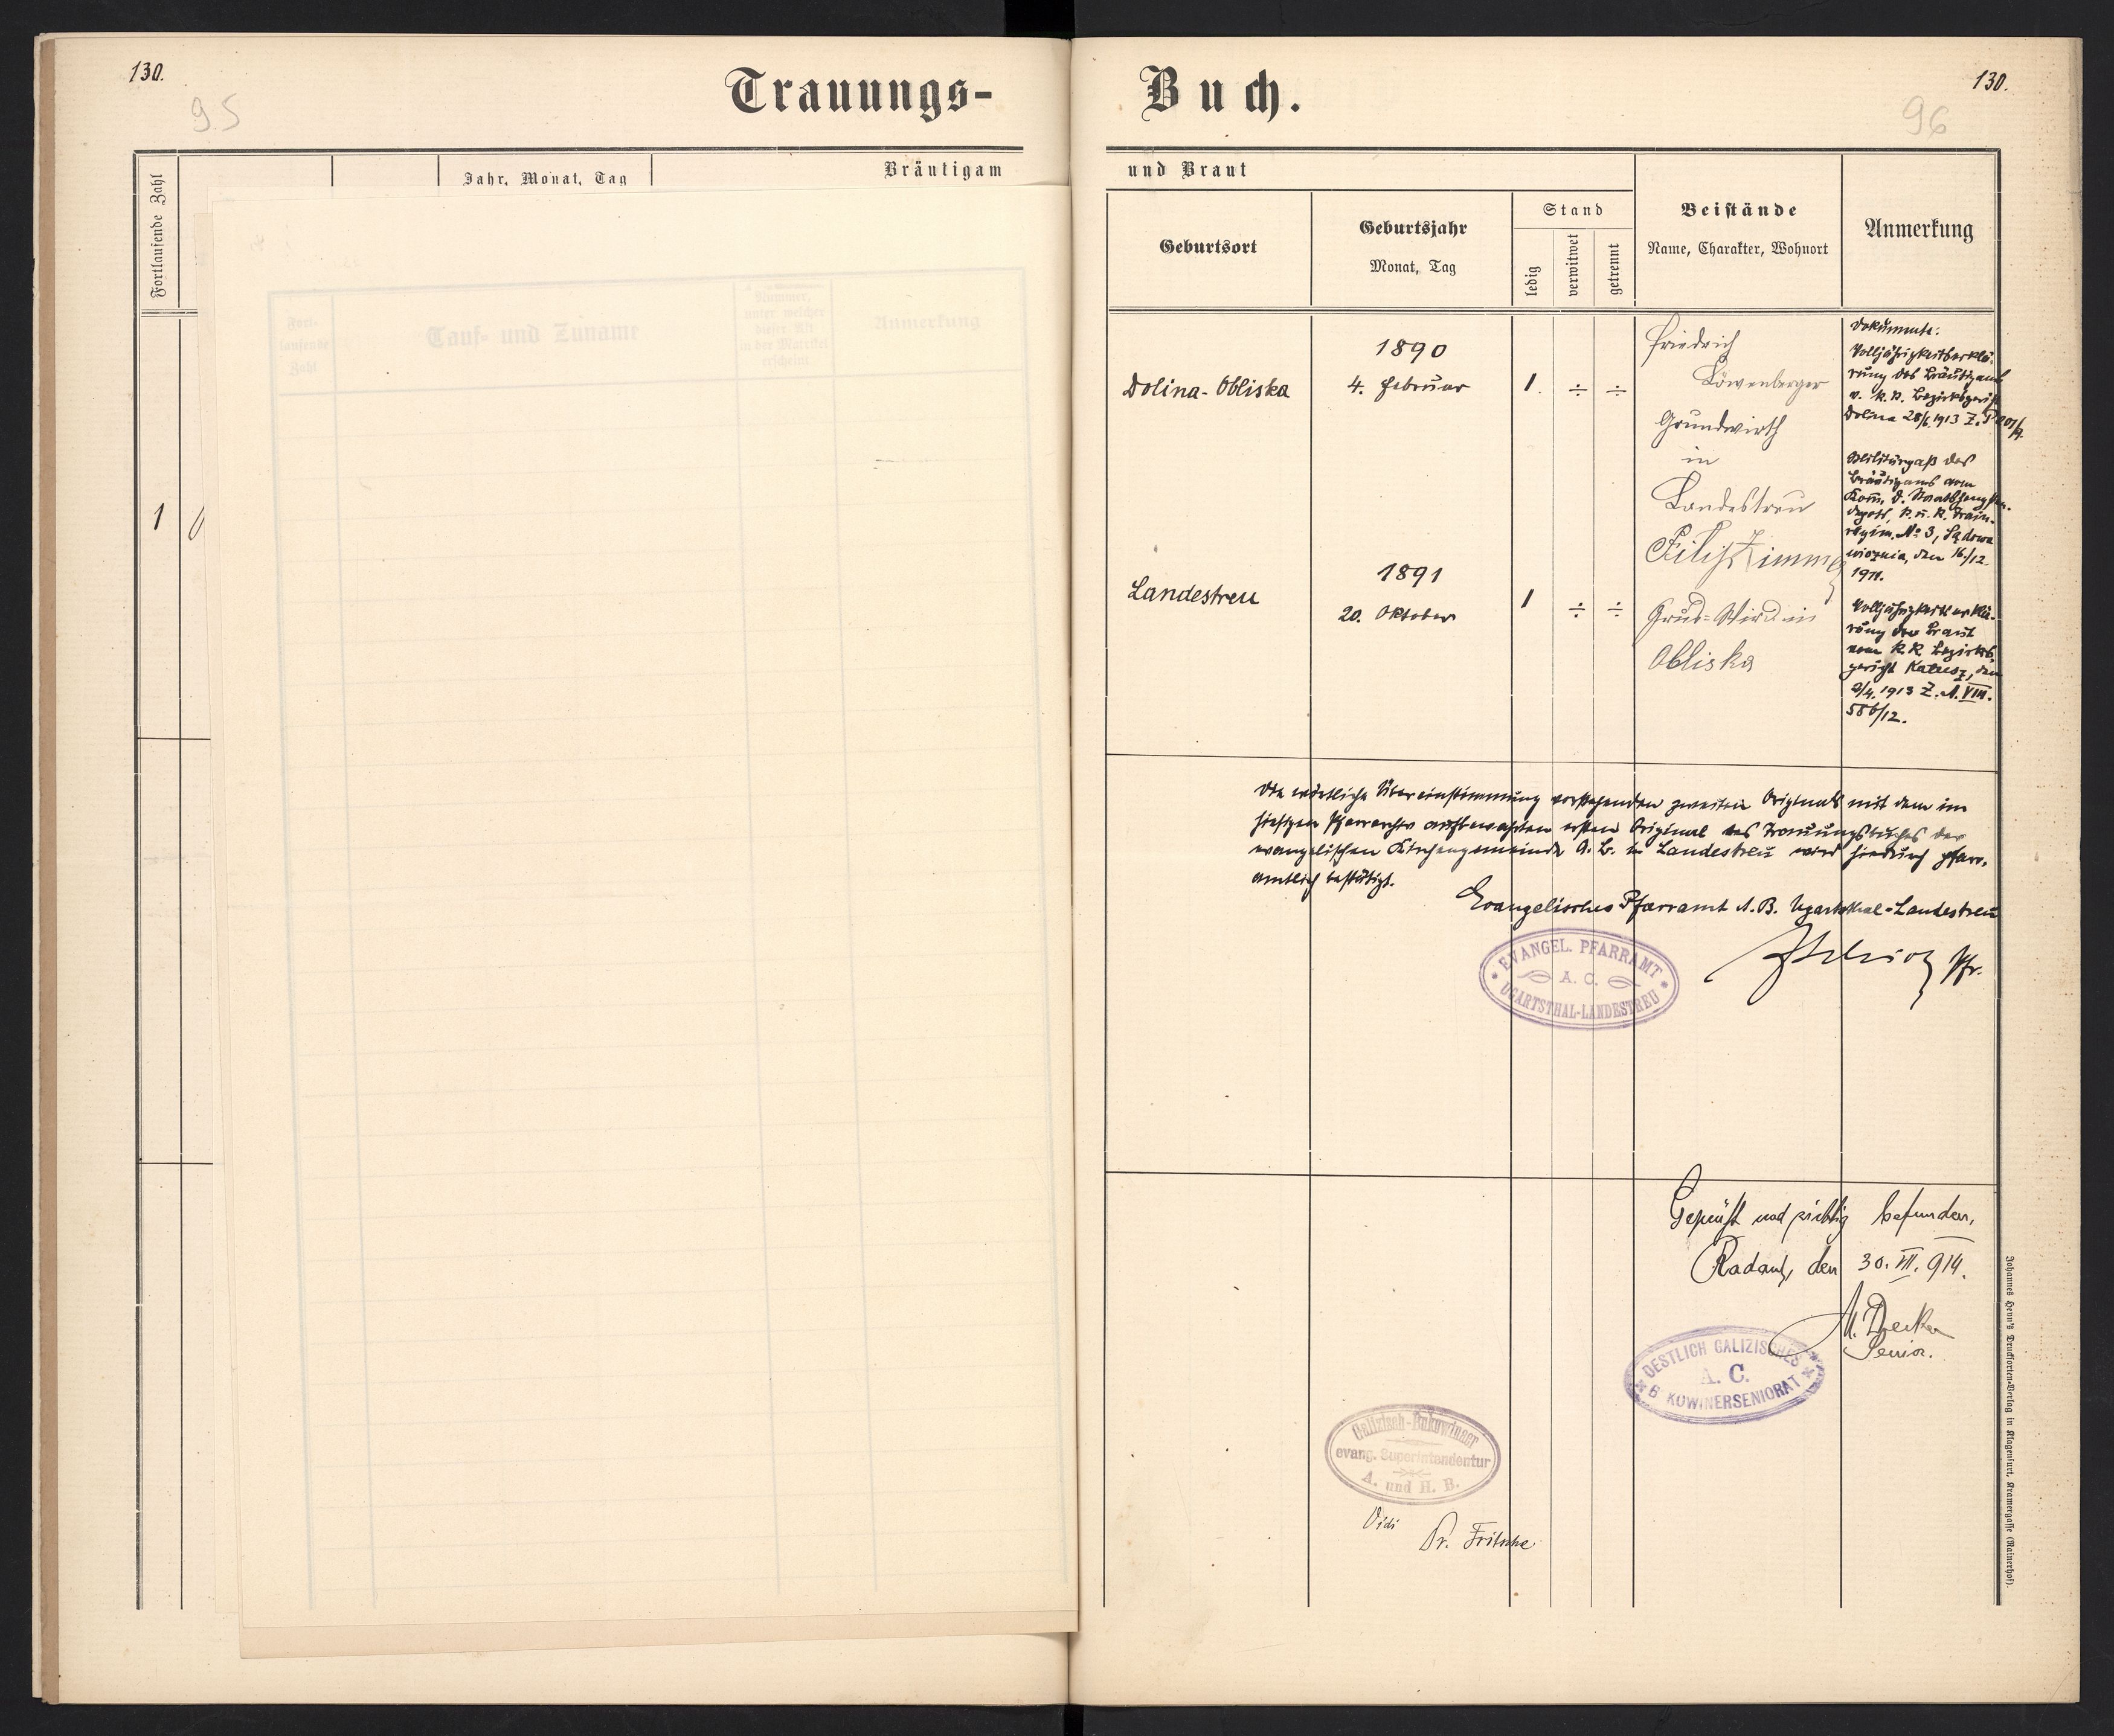 130.
95
Trauungs-
Fortlaufende Zahl
Jahr, Monat, Tag
Bräutigam
1
Fort-
laufende
Zahl
Tauf- und Zuname
Nummer,
unter welcher
dieser Akt
in der Matrikel
erscheint
Anmerkung
Buch.
130.
96
und Braut
Geburtsort
Geburtsjahr
Monat, Tag
Stand
ledig
verwitwet
getrennt
Beistände
Name, Charakter, Wohnort
Anmerkung
Dolina-Obliska
1890
4. Februar
1. ÷ ÷
Friedrich
Löwenberger
Grundwirth
in
Landestreu
Landestreu
1891
20. Oktober
1 ÷ ÷
Filip Zimmer
Grud-Wird in
Obliska
Dokumente:
Volljährigkeitserklä-
rung des Bräutigams
v. k. k. Bezirksgericht
Dolina 28/6. 1913 Z. P
Militärpaß des
Bräutigams vom
Kom. d. Staatshengsten-
depots, k. u. k. Train-
regim. No 3, Sądowa
wisznia, den 16/12.
1911.
Volljährigkeitserklä-
rung der Braut
vom k. k. Bezirks-
gericht Kalusz, den
2/4. 1913 Z. A. VIII.
586/12.
Die wörtliche Übereinstimmung vorstehenden zweiten Originals mit dem im
hiesigen Pfarrarchiv aufbewahrten ersten Original des Trauungsbuches der
evangelischen Kirchengemeinde A. B. in Landestreu wird hiedurch pfarr-
amtlich bestätigt.
Evangelisches Pfarramt A. B. Ugartsthal-Landestreu
Pfr.
EVANGEL. PFARRAMT
A. C.
UGARTSTHAL-LANDESTREU
Geprüft und richtig befunden,
Radautz, den 30. VII. 914.
M. Decker
Senior.
OESTLICH GALIZISCHES
A. C.
B KOWINERSENIORAT
Galizisch-Bukowinaer
evang. Superintendentur
A. und H. B.
Vidi
Dr. Fritsche
Johannes Heyn's Drucksorten-Verlag in Klagenfurt, Kramergasse (Rainerhof).